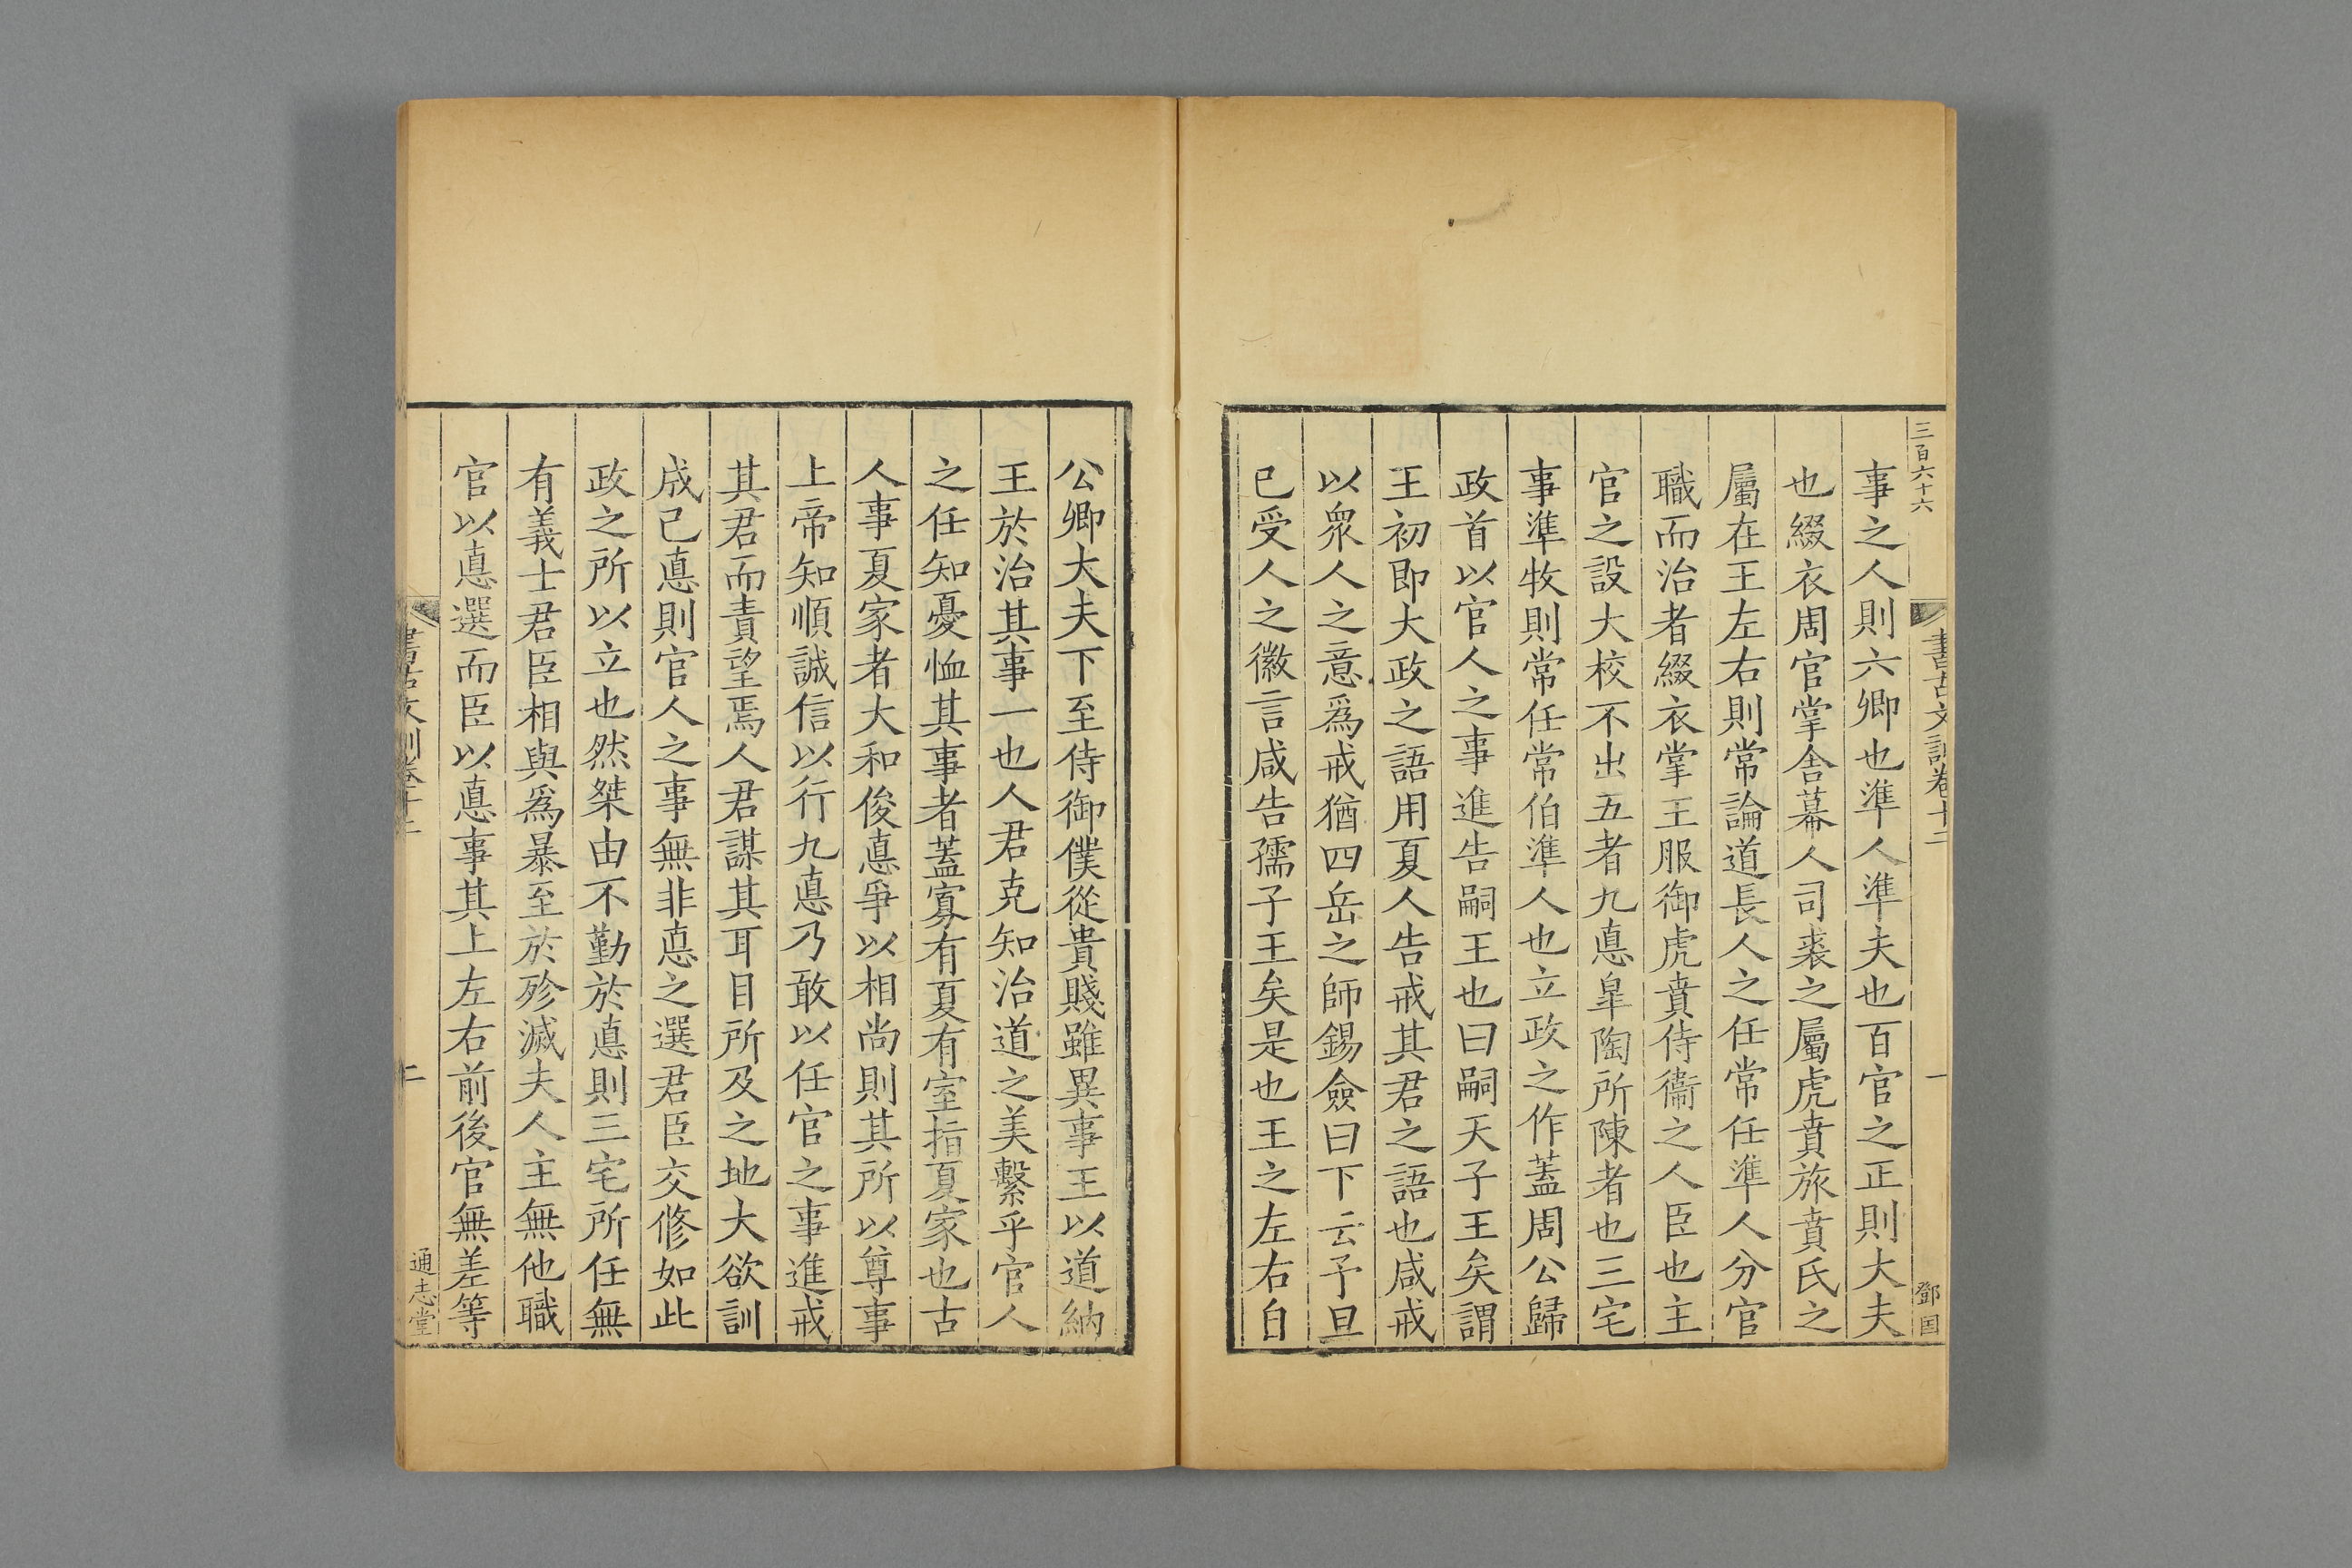 三百六十六
書古文訓卷十二
一
鄧国
事之人則六卿也準人準夫也百官之正則大夫
也綴衣周官掌舍幕人司裘之屬虎賁旅賁氏之
屬在王左右則常論道長人之任常任準人分官
職而治者綴衣掌王服御虎賁侍衞之人臣也主
官之設大校不出五者九悳臯陶所陳者也三宅
事準牧則常任常伯準人也立政之作蓋周公歸
政首以官人之事進告嗣王也曰嗣天子王矣謂
王初即大政之語用夏人告戒其君之語也咸戒
以衆人之意爲戒猶四岳之師錫僉曰下云予旦
已受人之徽言咸告孺子王矣是也王之左右自
公卿大夫下至侍御僕從貴賤雖異事王以道納
王於治其事一也人君克知治道之美繫乎官人
之任知憂恤其事者蓋寡有夏有室指夏家也古
人事夏家者大和俊悳爭以相尚則其所以尊事
上帝知順誠信以行九悳乃敢以任官之事進戒
其君而責望焉人君謀其耳目所及之地大欲訓
成己悳則官人之事無非悳之選君臣交修如此
政之所以立也然桀由不勤於悳則三宅所任無
有義士君臣相與爲暴至於殄滅夫人主無他職
官以悳選而臣以悳事其上左右前後官無差等
書古文訓卷十二
二
通志堂